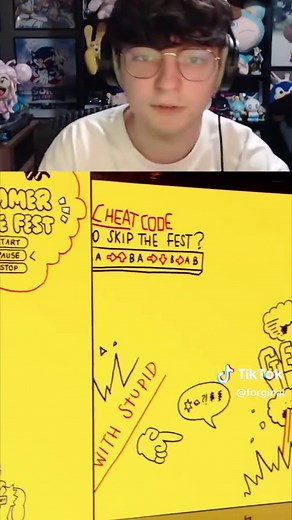 MMER
E FEST
START
PAUSE
STOP
CHEAT CODE
O SKIP THE FEST?
A ⇨⇧ B A ⇨⇩ B ⇨ A B
WITH STUPID
☆?!
GE
TikTok